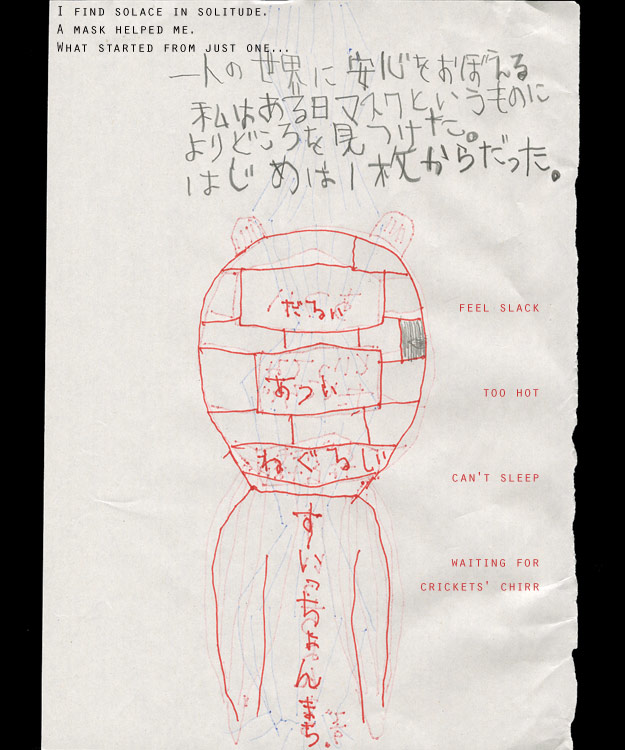 I FIND SOLACE IN SOLITUDE.
A MASK HELPED ME.
WHAT STARTED FROM JUST ONE...
一人の世界に安心をおぼえる
私はある日マスクというものに
よりどころを見つけた。
はじめは1枚からだった。
だるい
FEEL SLACK
あつい
TOO HOT
ねぐるしい
CAN'T SLEEP
すいっちょんまち。
WAITING FOR
CRICKETS' CHIRR